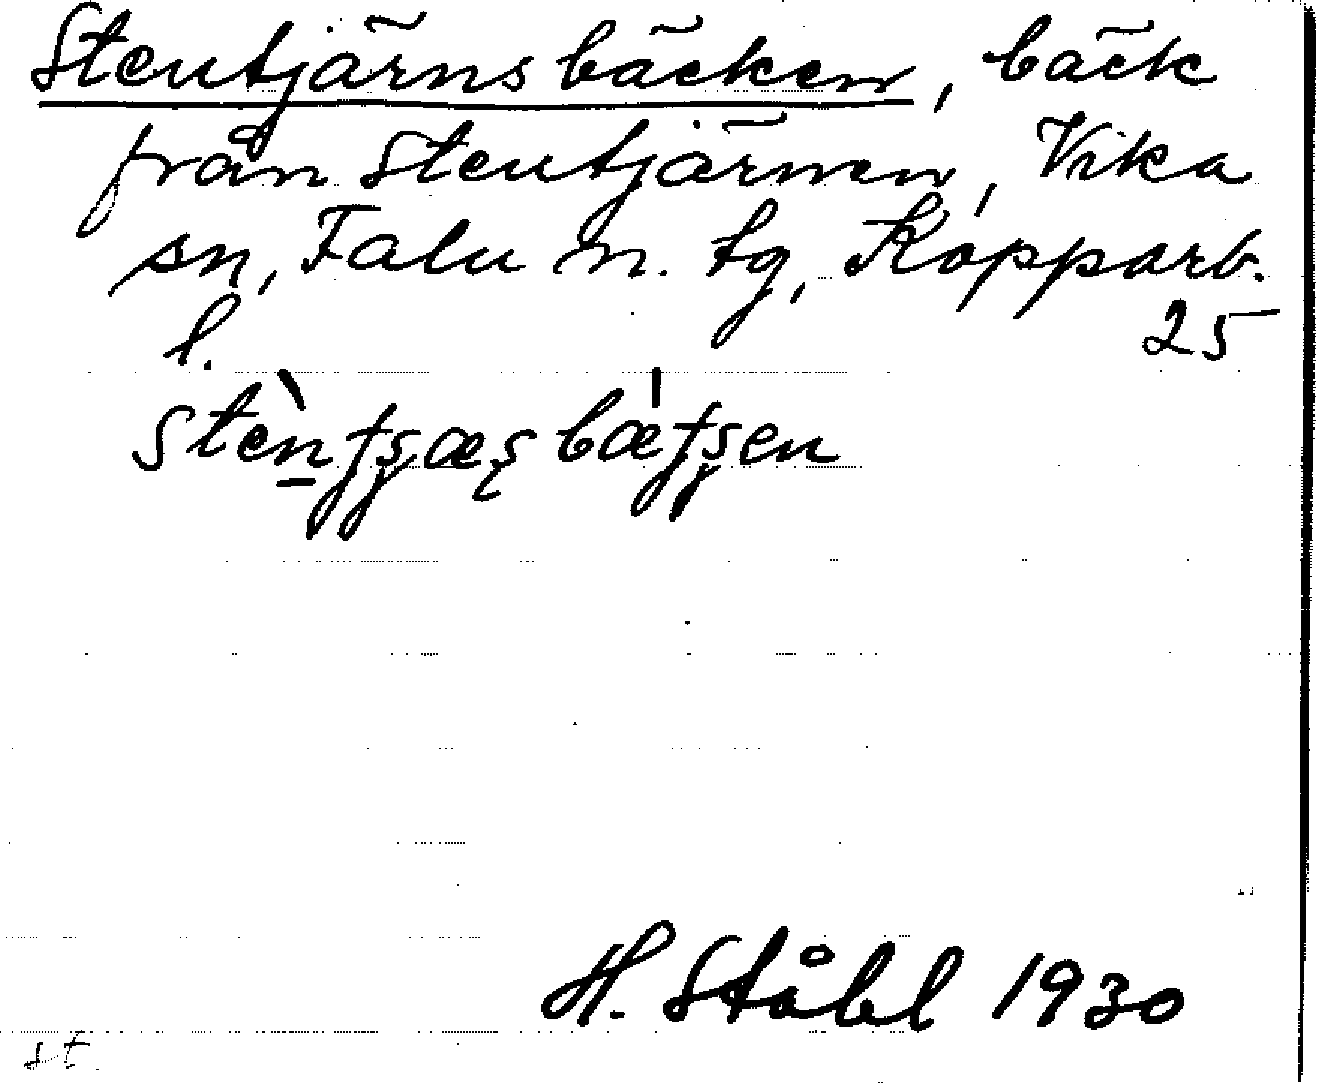 Stentjärnsbäcken, bäck
från Stentjärnen, Vika
sn, Falu n. tg, Kopparb.
l. 25
H. Ståhl 1930
st